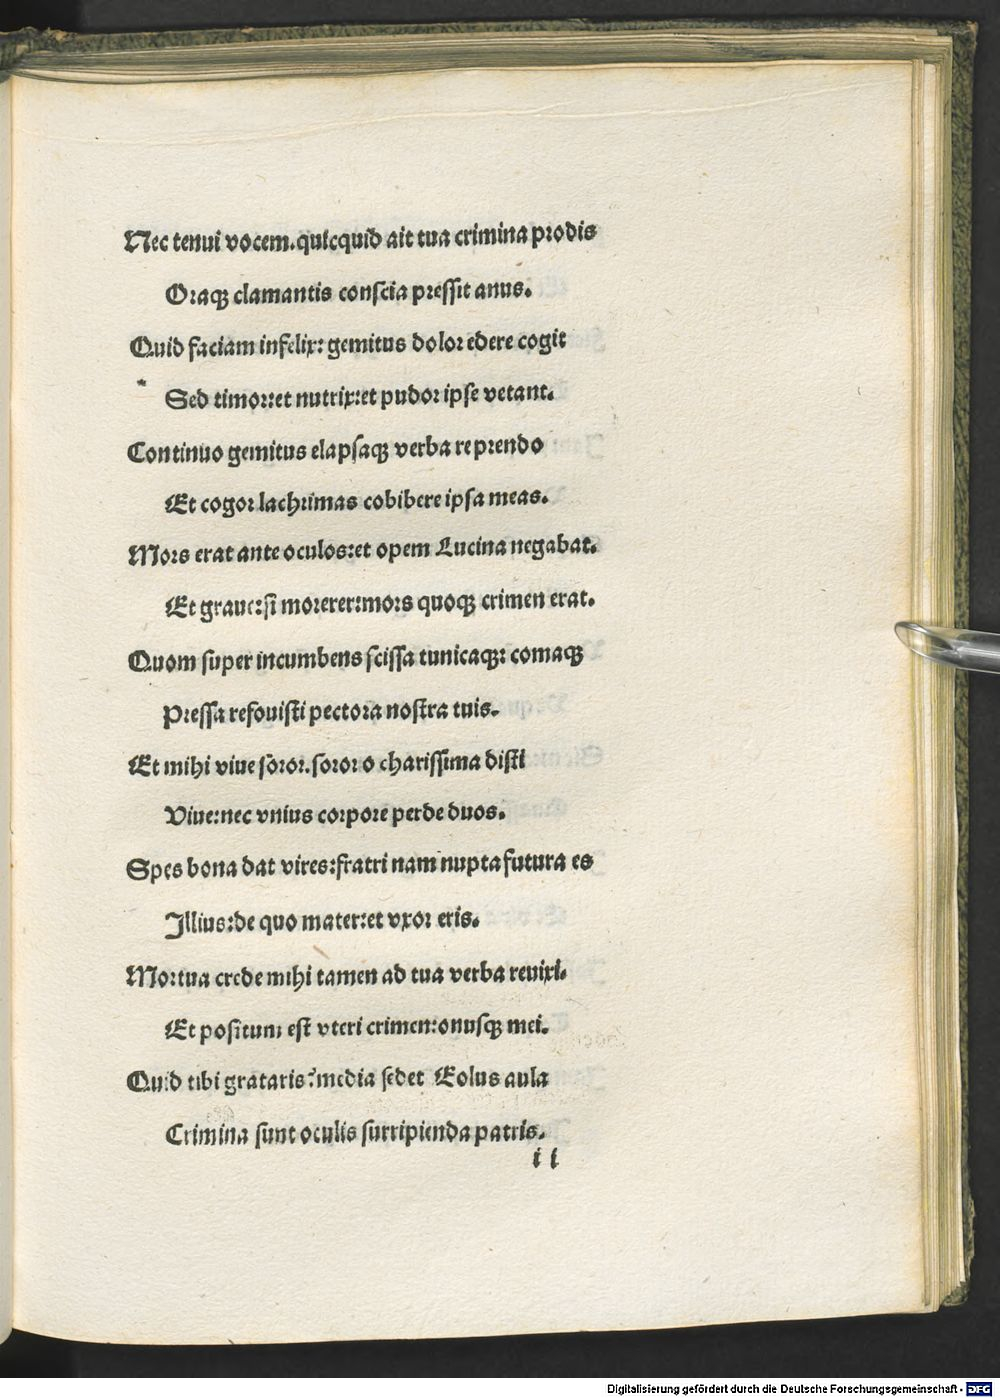 Nec tenui vocem.quicquid ait tua crimina prodis
Oraqꝫ clamantis conscia pressit anus.
Quid faciam infelix: gemitus dolor edere cogit
Sed timor:et nutrix:et pudor ipse vetant.
Continuo gemitus elapsaqꝫ verba reprendo
Et cogor lachrimas cobibere ipsa meas.
Mors erat ante oculos:et opem Lucina negabat.
Et graue:si morerer:mors quoqꝫ crimen erat.
Quom super incumbens scissa tunicaqꝫ: comaqꝫ
Pressa refouisti pectora nostra tuis.
Et mihi viue soror.soror o charissima disti
Viue:nec vnius corpore perde duos.
Spes bona dat vires:fratri nam nupta futura es
Illius:de quo mater:et vxor eris.
Mortua crede mihi tamen ad tua verba reuixi.
Et positum est vteri crimen:onusqꝫ mei.
Quid tibi grataris? media sedet Eolus aula
Crimina sunt oculis surripienda patris.
i i
Digitalisierung gefördert durch die Deutsche Forschungsgemeinschaft - DFG